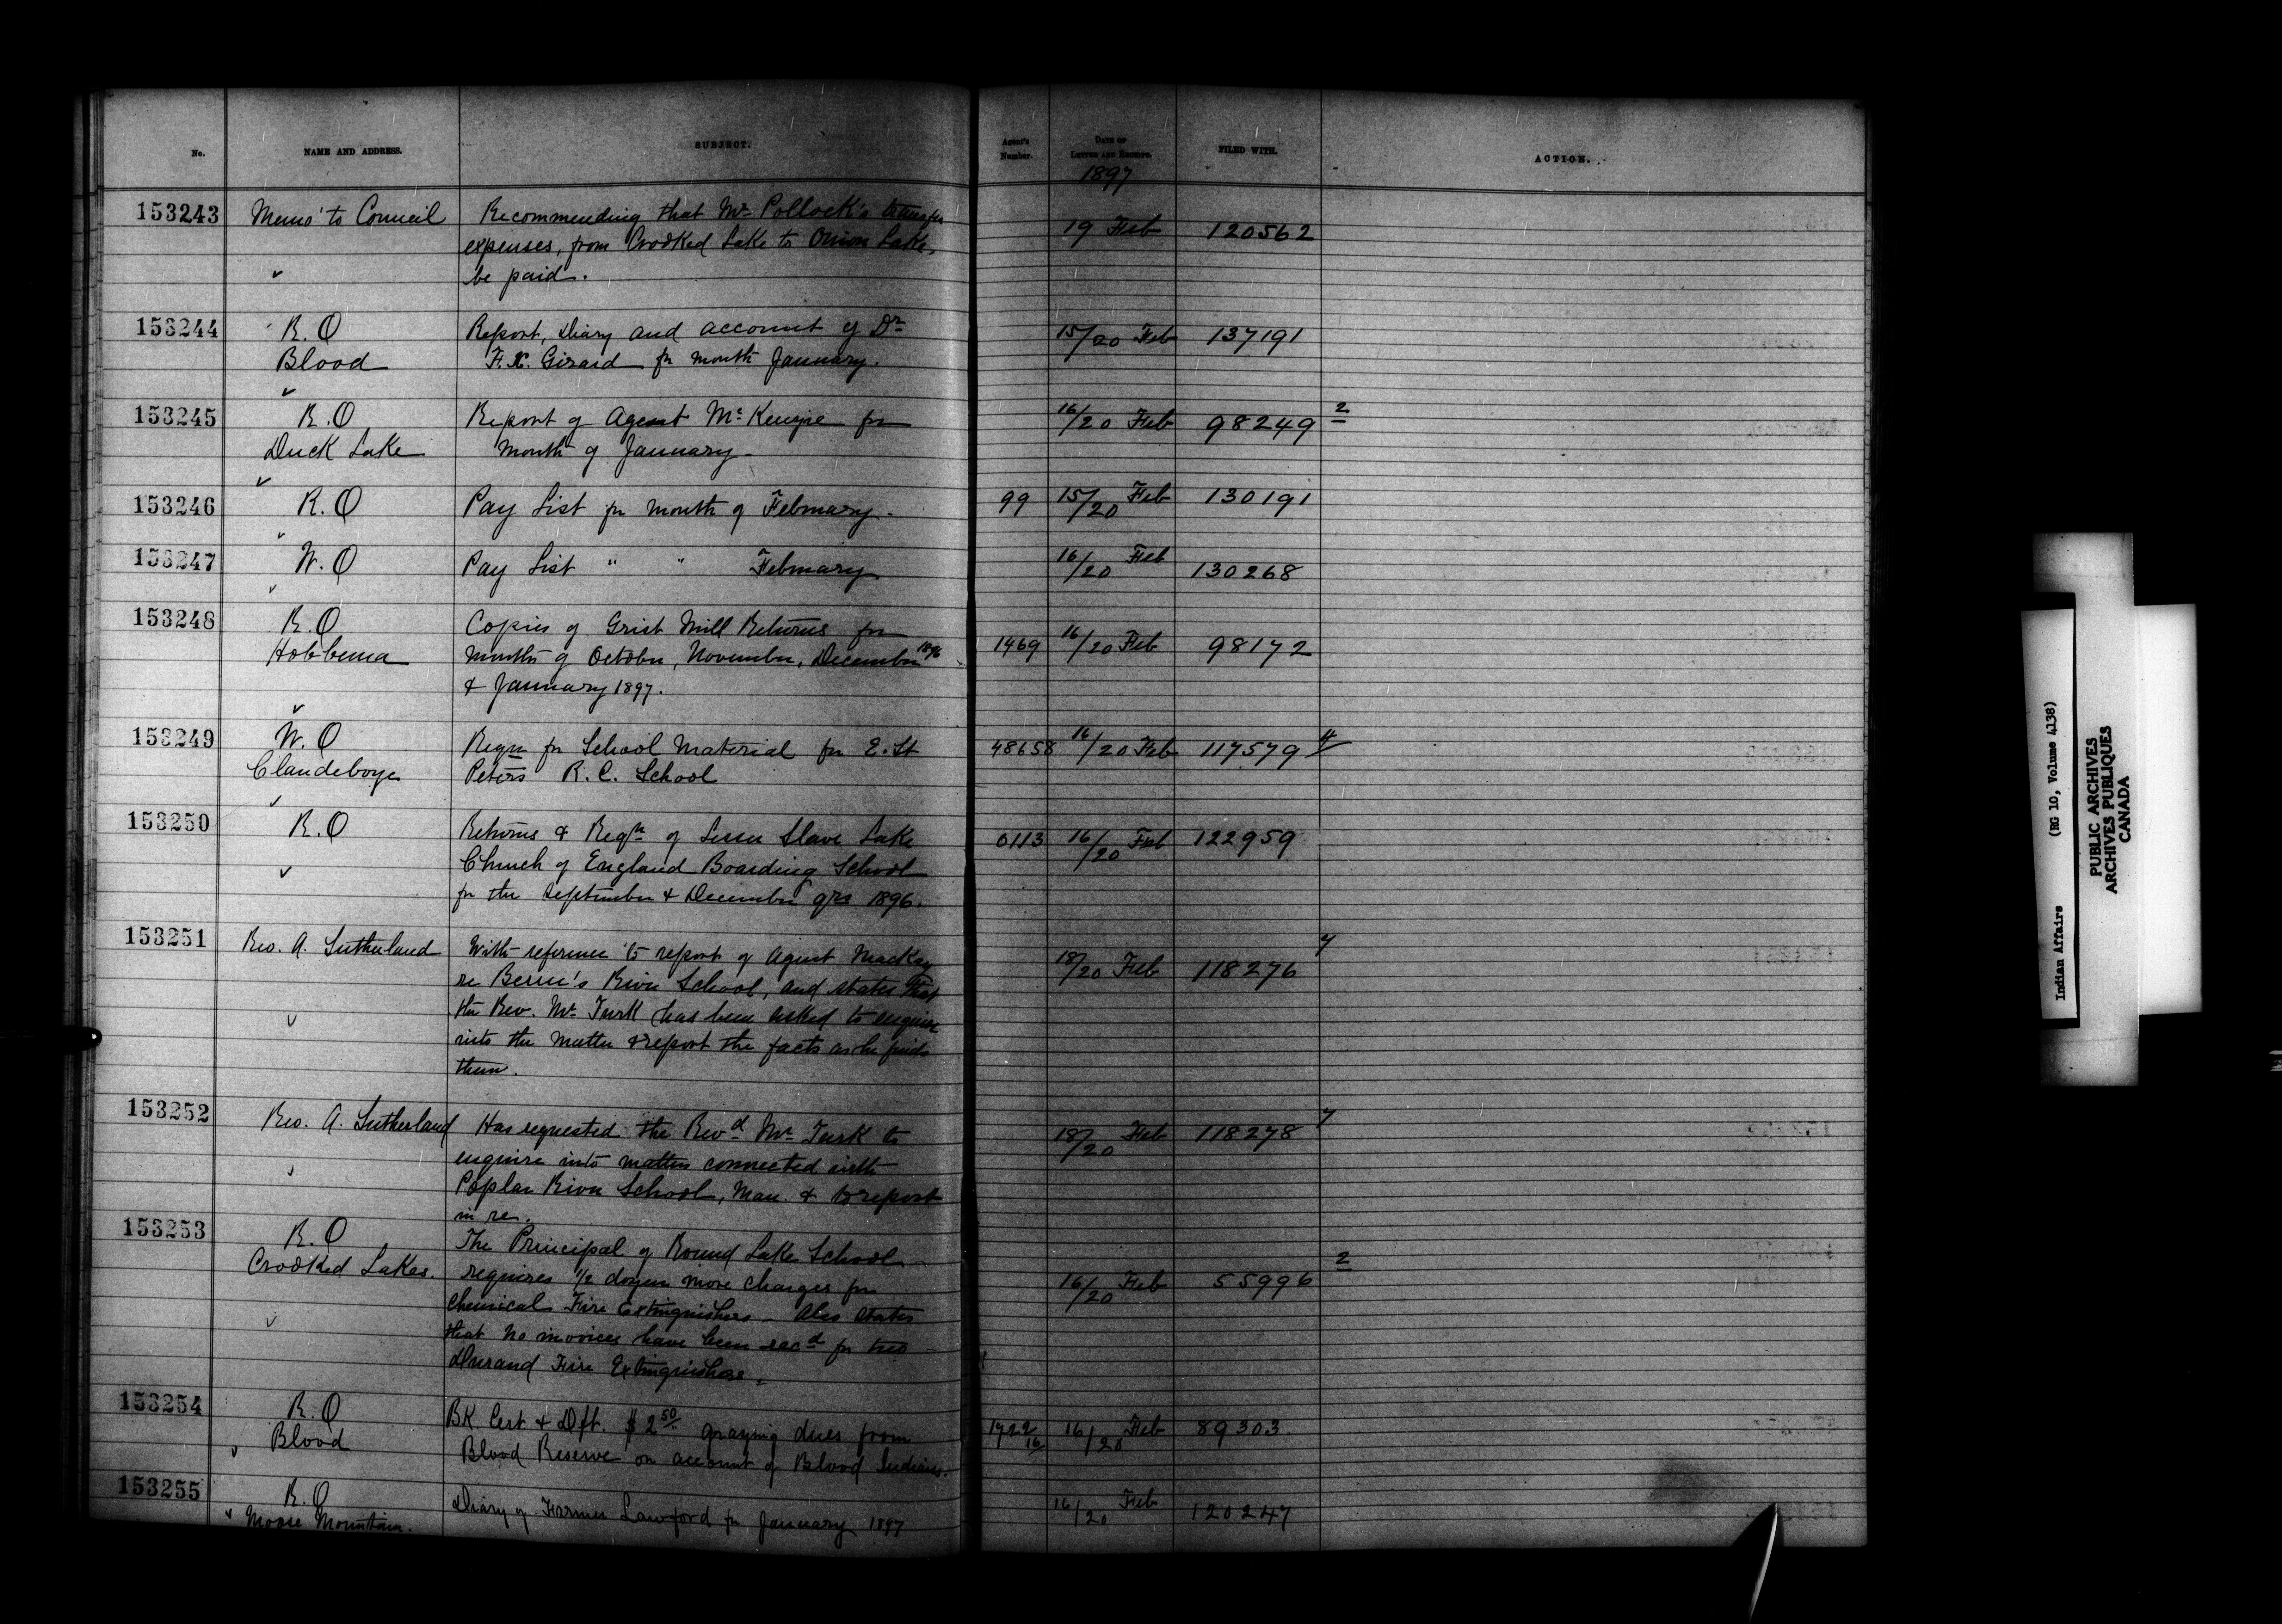 No. NAME AND ADDRESS. SUBJECT. Agent's Number. DATE OF LETTER AND RECEIPT. FILED WITH. ACTION.
1897
153243 Memo' to Council Recommending that Mr Pollock's transfer
expenses, from Crooked Lake to Onion Lake, 19 Feb 120562
be paid.
153244 R.O Report, Diary and account of Dr 15/20 Feb 137191
Blood F. X. Girard for month January.
153245 R.O Report of Agent McKenzie for 16/20 Feb 98249 2
Duck Lake month of January.
153246 R.O Pay List for month of February. 99 15/20 Feb 130191
153247 W.O Pay List " " February 16/20 Feb 130268
153248 R.O Copies of Grist Mill Returns for
Hobbema months of October, November, December 1896 1469 16/20 Feb 98172
& January 1897.
153249 W.O Reqn for School Material for E. St 48658 16/20 Feb 117579 4
Clandeboye Peters R.C. School
153250 R.O Returns & Reqn of Lesser Slave Lake 0113 16/20 Feb 122959
Church of England Boarding School
for the September & December qrs 1896.
153251 Rev. A. Sutherland With reference to report of Agent Mackay 7
re Beren's River School, and states that 18/20 Feb 118276
the Rev. Mr Turk has been asked to enquire
into the matter & report the facts as he finds
them.
153252 Rev. A. Sutherland Has requested the Revd Mr Turk to 18/20 Feb 118278 7
enquire into matters connected with
Poplar River School, Man. & to report
in re.
153253 R.O The Principal of Round Lake School
Crooked Lakes. requires 1/2 dozen more charges for 16/20 Feb 55996 2
Chemical Fire Extinguishers - Also states
that no invoices have been recd for two
Durand Fire Extinguishers.
153254 R.O BK Cert & Dft. $2 50/ grazing dues from 1722/16 16/20 Feb 89303
Blood Blood Reserve on account of Blood Indians.
153255 R.O Diary of Farmer Lawford for January 1897 16/20 Feb 120247
Moose Mountain.
Indian Affairs (RG 10, Volume 4138)
PUBLIC ARCHIVES
ARCHIVES PUBLIQUES
CANADA